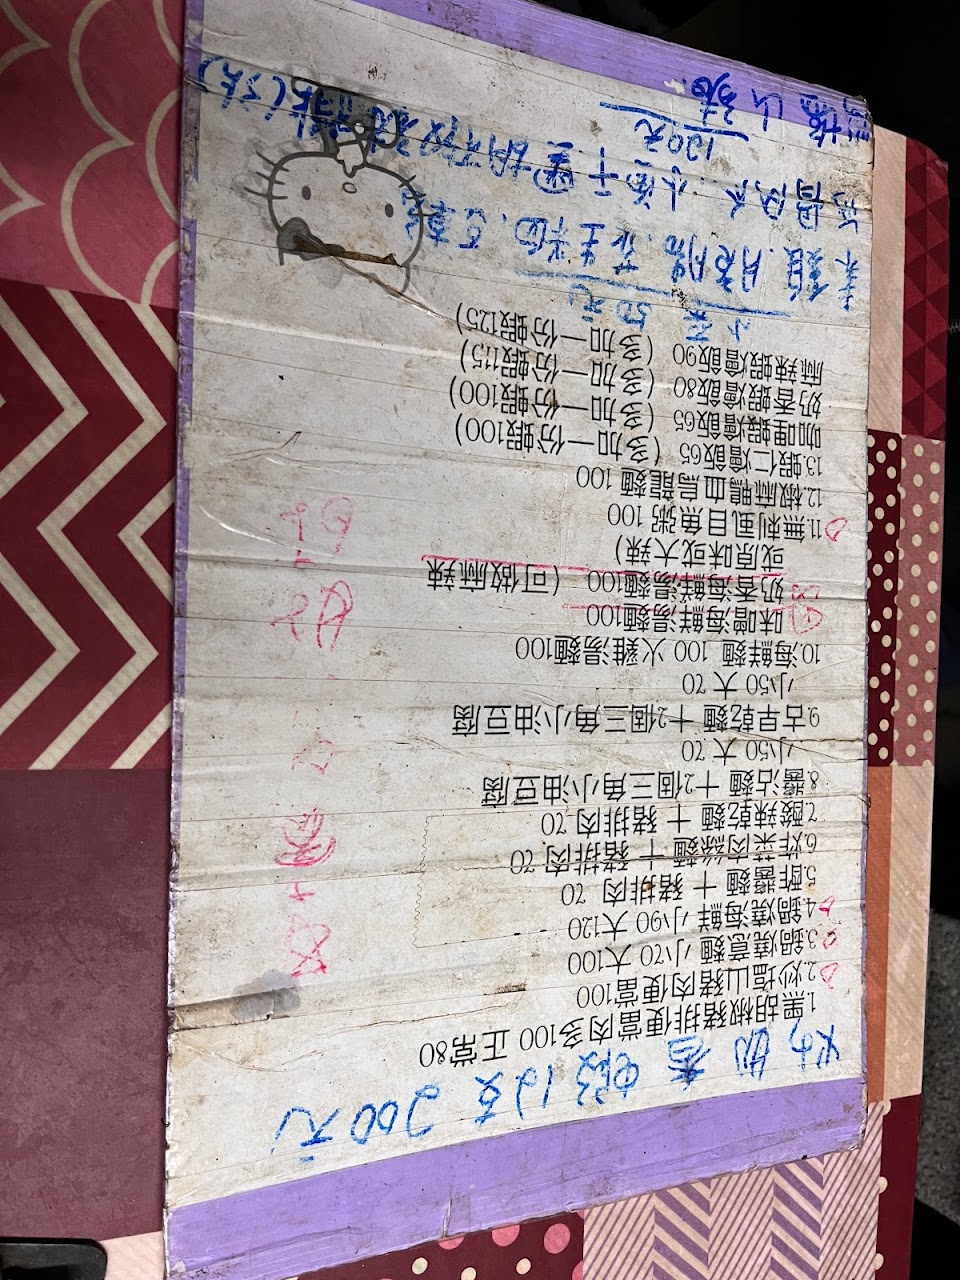 炒奶香蝦12支200元
1.黑胡椒豬排便當肉多100 正常80
2.炒塩山豬肉便當100
3.鍋燒意麵 小70 大100
4.鍋燒海鮮 小90 大120
5.酢醬麵 ＋ 豬排肉 70
6.炸菜肉絲麵 ＋ 豬排肉 70
7.酸辣乾麵 ＋ 豬排肉 70
8.醬沾麵 ＋2個三角小油豆腐
小50 大 70
9.古早乾麵 ＋2個三角小油豆腐
小50 大 70
10.海鮮麵 100 火雞湯麵100
味噌海鮮湯麵100
奶香海鮮湯麵100 (可做麻辣
或原味或大辣)
11.無刺虱目魚粥 100
12.椒麻鴨血烏龍麵 100
13.蝦仁燴飯65 (多加一份蝦100)
咖哩蝦燴飯65 (多加一份蝦100)
奶香蝦燴飯80 (多加一份蝦115)
麻辣蝦燴飯90 (多加一份蝦125)
小菜 50元
120元